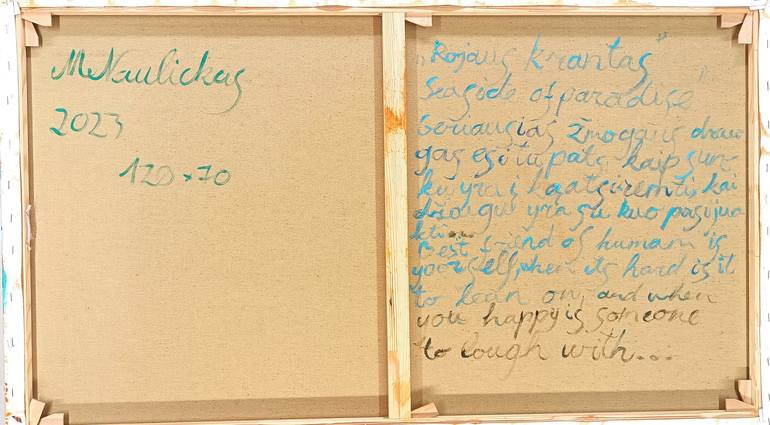 M Naulickas
2023
120 × 70
„Rojaus krantas"
Seaside of paradise"
Geriausias žmogaus drau
gas esi tu pats, kaip sun-
ku yra į ką atsiremti, kai
džiaugu yra su kuo pasijuo
kti...
Best friend of humam is
yourself, when its hard is it
to lean on, and when
you happy is someone
to lough with...